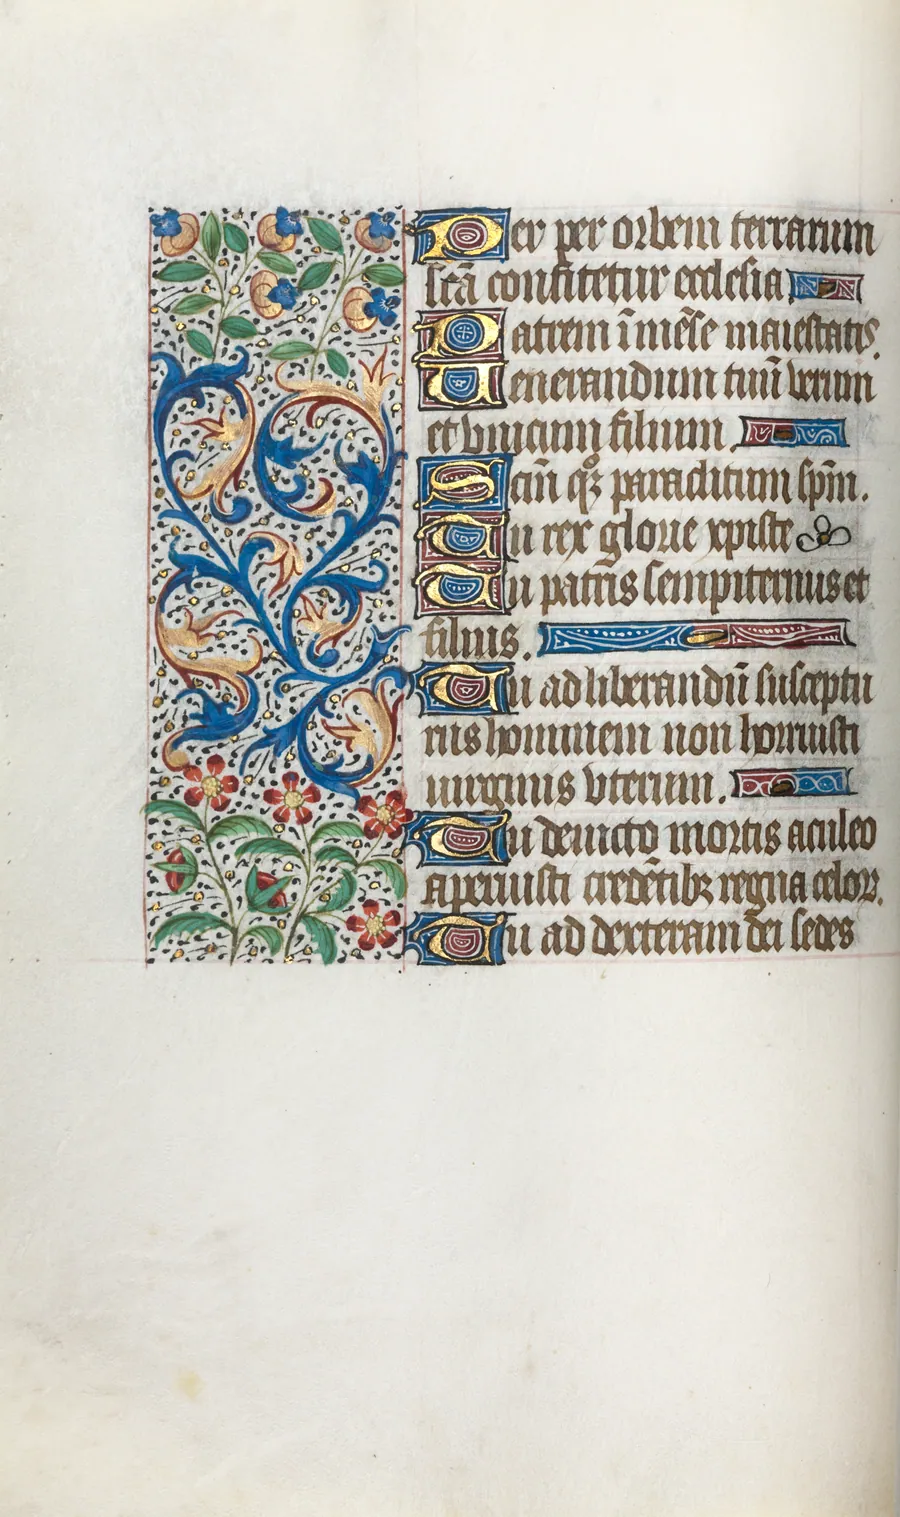 Per per orbem terrarum
scã confitetur ecclesia
Patrem ĩmẽse maiestatis.
Venerandum tuũ verum
et vnicum filium
Sctũ q̊ꝫ paraclitum spm̃.
Tu rex glorie xpiste
Tu patris sempiternus et
filius.
Tu ad liberandũ susceptu
rus hominem non horruisti
uirginis vterum.
Tu deuicto mortis aculeo
aperuisti credẽtibꝫ regna celoꝝ.
Tu ad dexteram dei sedes